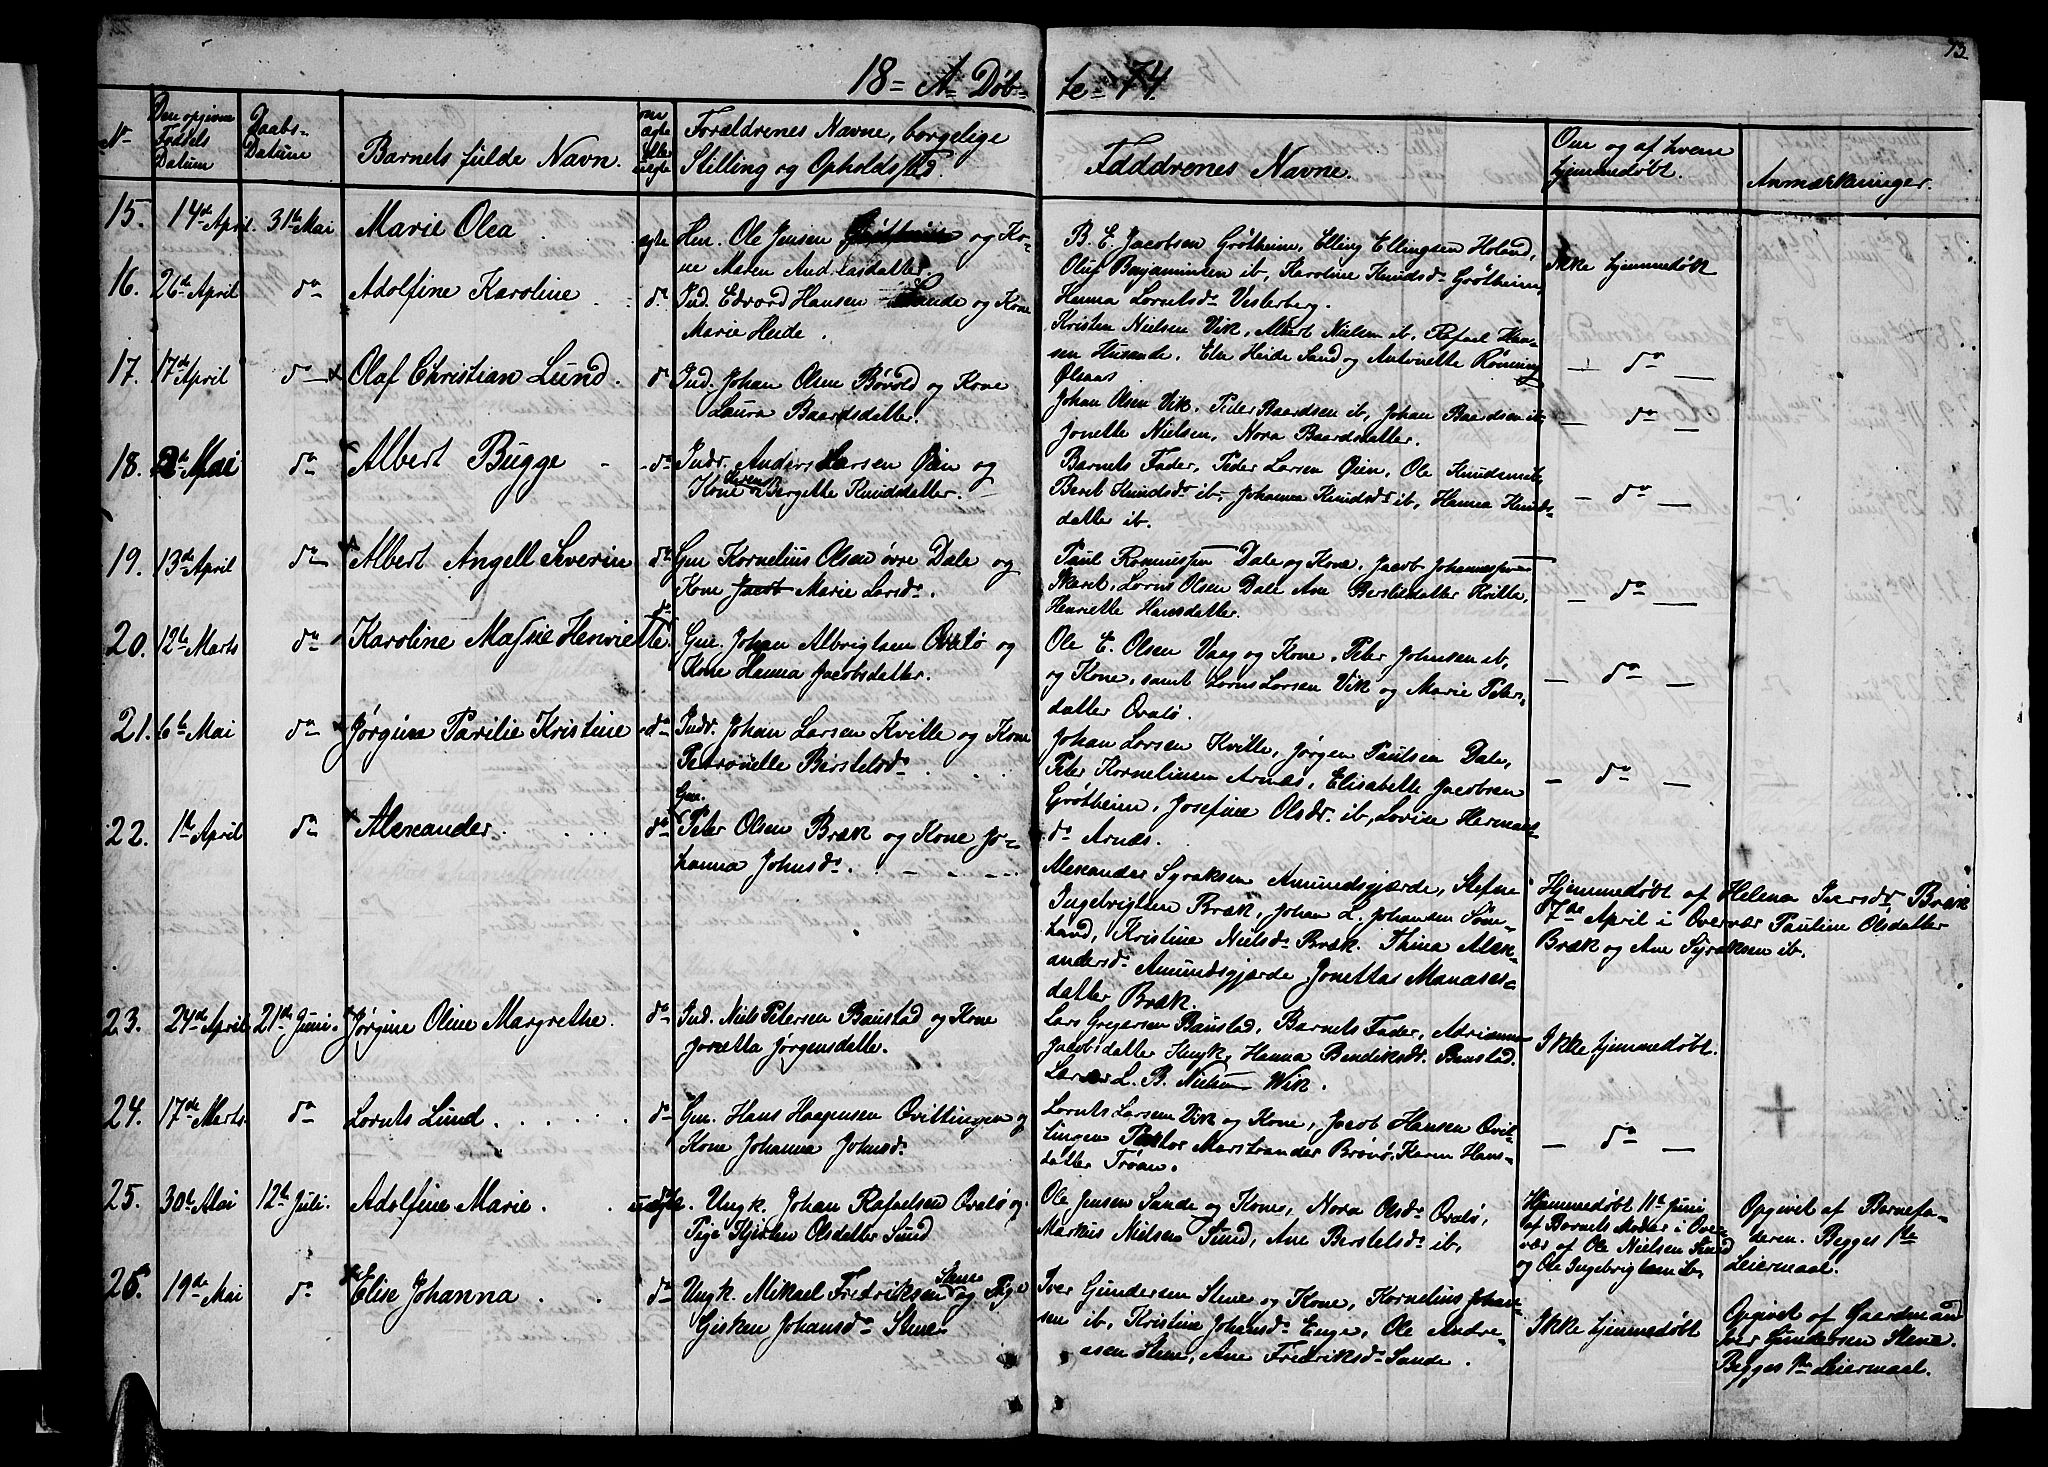 73
18 A Døb- te 74.
№
Den opgivne Fødsels Datum
Daabs- Datum
Barnets fulde Navn.
om ægte eller uægte
Forældrenes Navne, borgelige Stilling og Opholdssted.
Fadderenes Navne.
Om og af hvem hjemmedøbt.
Anmærkninger.
15. 14de April. 31te Mai Marie Olea ægte
Hen. Ole Jensen og Ko-
ne Maren Andreasdatter.
B. E. Jacobsen Grøtheim, Elling Ellingsen Holand,
Oluf Benjaminsen ib, Karoline Knudsdr Grøtheim,
Hanna Lorntsdr Vesterberg.
Ikke hjemmedøbt
16. 26de April do Adolfine Karoline do
Ind. Edvard Hansen Sande og Kone
Marie Heide.
Kristen Nielsen Vik, Albert Nielsen ib, Rafael Han-
sen Husande, Else Heide Sand og Antonette Rønning
Ølsaas
do
17. 17de April do Olaf Christian Lund. do
Ind. Johan Olsen Bøvold og Kone
Laura Baardsdatter.
Johan Olsen Vik, Peder Baardsen ib, Johan Baardsen ib
Jonette Nielsen, Nora Baardsdatter.
do
18. 2de Mai do Albert Bugge do
Indr. Anders Larsen Øien og
Kone Bergette Knudsdatter.
Barnets Fader, Peder Larsen Øien, Ole Knudsen ib,
Beret Knudsdr ib, Johanna Knudsdr ib, Hanna Knuds-
datter ib.
do
19. 13de April do Albert Angell Severin do
Gm Kornelius Olsen øvre Dale og
Kone Jacob Marie Larsdr.
Paul Rasmussen Dale og Kone, Jacob Johannessen
Skaret, Lorns Olsen Dale Ane Berstesdatter Kville,
Henriette Hansdatter.
do
20. 12te Marts do Karoline Magnie Henriette. do
Gm. Johan Albrigtsen Qvalø og
Kone Hanna Jacobsdatter.
Ole E. Olsen Vaag og Kone, Peter Johnsen ib,
og Kone, samt Lorns Larsen Vik og Marie Peters-
datter Qvalø.
do
21. 6te Mai do Jørgine Parilie Kristine do
Indr. Johan Larsen Kville og Kone
Petronelle Berstelsdr
Johan Larsen Kville, Jørgen Paulsen Dale,
Peter Korneliusen Arnæs, Elisabeth Jacobsen
Grøtheim, Josefine Olsdr ib, Lovise Hermans-
dr Arnæs.
do
22. 1te April do Alexander. do
Gm.
Peter Olsen Bræk og Kone Jo-
hanna Johnsdr.
Alexander Syraksen Amundsgjærde, Stefne
Ingebrigtsen Bræk, Johan L. Johansen Søm-
hand, Kristine Nielsdr Bræk. Thina Alex-
andersdr Amundsgjærde Jonettas Manases-
datter Bræk.
Hjemmedøbt af Helena Iversdr, Bræk
7de April i Overvær Pauline Olsdatter
Bræk og Ane Syraksen ib.
23. 24de April 21de Juni. Jørgine Oline Margrethe. do
Ind. Niels Petersen Baustad og Kone
Jonetta Jørgensdatter.
Lars Gregersen Baustad, Barnets Fader, Adrianna
Jacobsdatter Husvik, Hanna Bendiksdr. Baustad.
L. B. Nielsen Wik.
Ikke hjemmedøbt.
24. 17de Marts. do Lornts Lund do
Gm. Hans Haagensen Qvillingen og
Kone Johanna Johnsdr.
Lornts Larsen Vik og Kone, Jacob Hansen Qvil-
lingen Marstrander Brønø, Karen Hans-
datter Trøan.
do
25. 30te Mai 12te Juli. Adolfine Marie. uægte.
Ungk. Johan Rafaelsen Qvalø og
Pige Kjersten Olsdatter Sund
Ole Jensen Sande og Kone, Nora Olsdr Qvalø,
Markus Nielsen Sund, Ane Berstelsdr ib.
Hjemmedøbt 11te Juni
af Barnets Moder i Over-
vær af Ole Nielsen Sund
og Ole Ingebrigtsen ib.
Opgivet af Barnefa-
deren. Begges 1te
Leiermaal.
26. 19de Mai do Elise Johanna do
Ungk. Mikael Fredriksen Stene og Pige
Gisken Johansdr Stene.
Iver Gundersen Stene og Kone, Kornelius Johan-
sen ib, Kristine Johansdr Enge, Ole Andre-
asen Stene, Ane Fredriksdr Sande.
Ikke hjemmedøbt
Opgivet af Gaardmand
Iver Gundersen Stene.
Begges 1te Leiermaal.